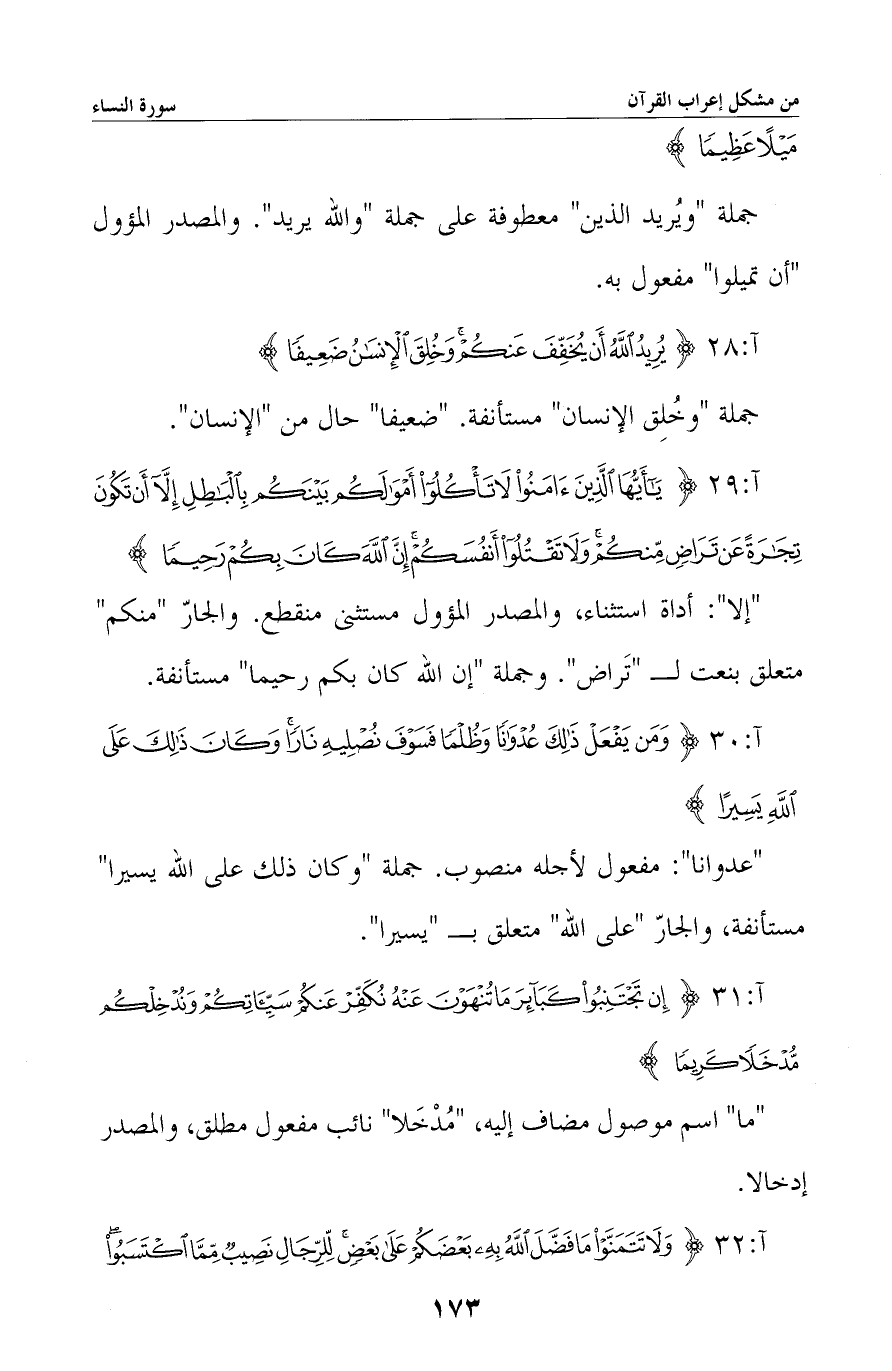 من مشكل إعراب القرآن سورة النساء
مَيْلًا عَظِيمًا ﴾
جملة "ويُريد الذين" معطوفة على جملة "والله يريد". والمصدر المؤول
"أن تميلوا" مفعول به.
آ:٢٨ ﴿ يُرِيدُ ٱللَّهُ أَن يُخَفِّفَ عَنكُمْ ۚ وَخُلِقَ ٱلْإِنسَٰنُ ضَعِيفًا ﴾
جملة "وخُلِق الإنسان" مستأنفة. "ضعيفا" حال من "الإنسان".
آ:٢٩ ﴿ يَٰٓأَيُّهَا ٱلَّذِينَ ءَامَنُوا۟ لَا تَأْكُلُوٓا۟ أَمْوَٰلَكُم بَيْنَكُم بِٱلْبَٰطِلِ إِلَّآ أَن تَكُونَ
تِجَٰرَةً عَن تَرَاضٍ مِّنكُمْ ۚ وَلَا تَقْتُلُوٓا۟ أَنفُسَكُمْ ۚ إِنَّ ٱللَّهَ كَانَ بِكُمْ رَحِيمًا ﴾
"إلا": أداة استثناء، والمصدر المؤول مستثنى منقطع. والجارّ "منكم"
متعلق بنعت لــ "تَراض". وجملة "إن الله كان بكم رحيما" مستأنفة.
آ:٣٠ ﴿ وَمَن يَفْعَلْ ذَٰلِكَ عُدْوَٰنًا وَظُلْمًا فَسَوْفَ نُصْلِيهِ نَارًا ۚ وَكَانَ ذَٰلِكَ عَلَى
ٱللَّهِ يَسِيرًا ﴾
"عدوانا": مفعول لأجله منصوب. جملة "وكان ذلك على الله يسيرا"
مستأنفة، والجارّ "على الله" متعلق بــ "يسيرا".
آ:٣١ ﴿ إِن تَجْتَنِبُوا۟ كَبَآئِرَ مَا تُنْهَوْنَ عَنْهُ نُكَفِّرْ عَنكُمْ سَيِّـَٔاتِكُمْ وَنُدْخِلْكُم
مُّدْخَلًا كَرِيمًا ﴾
"ما" اسم موصول مضاف إليه، "مُدْخَلا" نائب مفعول مطلق، والمصدر
إدخالا.
آ:٣٢ ﴿ وَلَا تَتَمَنَّوْا۟ مَا فَضَّلَ ٱللَّهُ بِهِۦ بَعْضَكُمْ عَلَىٰ بَعْضٍ ۚ لِّلرِّجَالِ نَصِيبٌ مِّمَّا ٱكْتَسَبُوا۟ ۖ
١٧٣